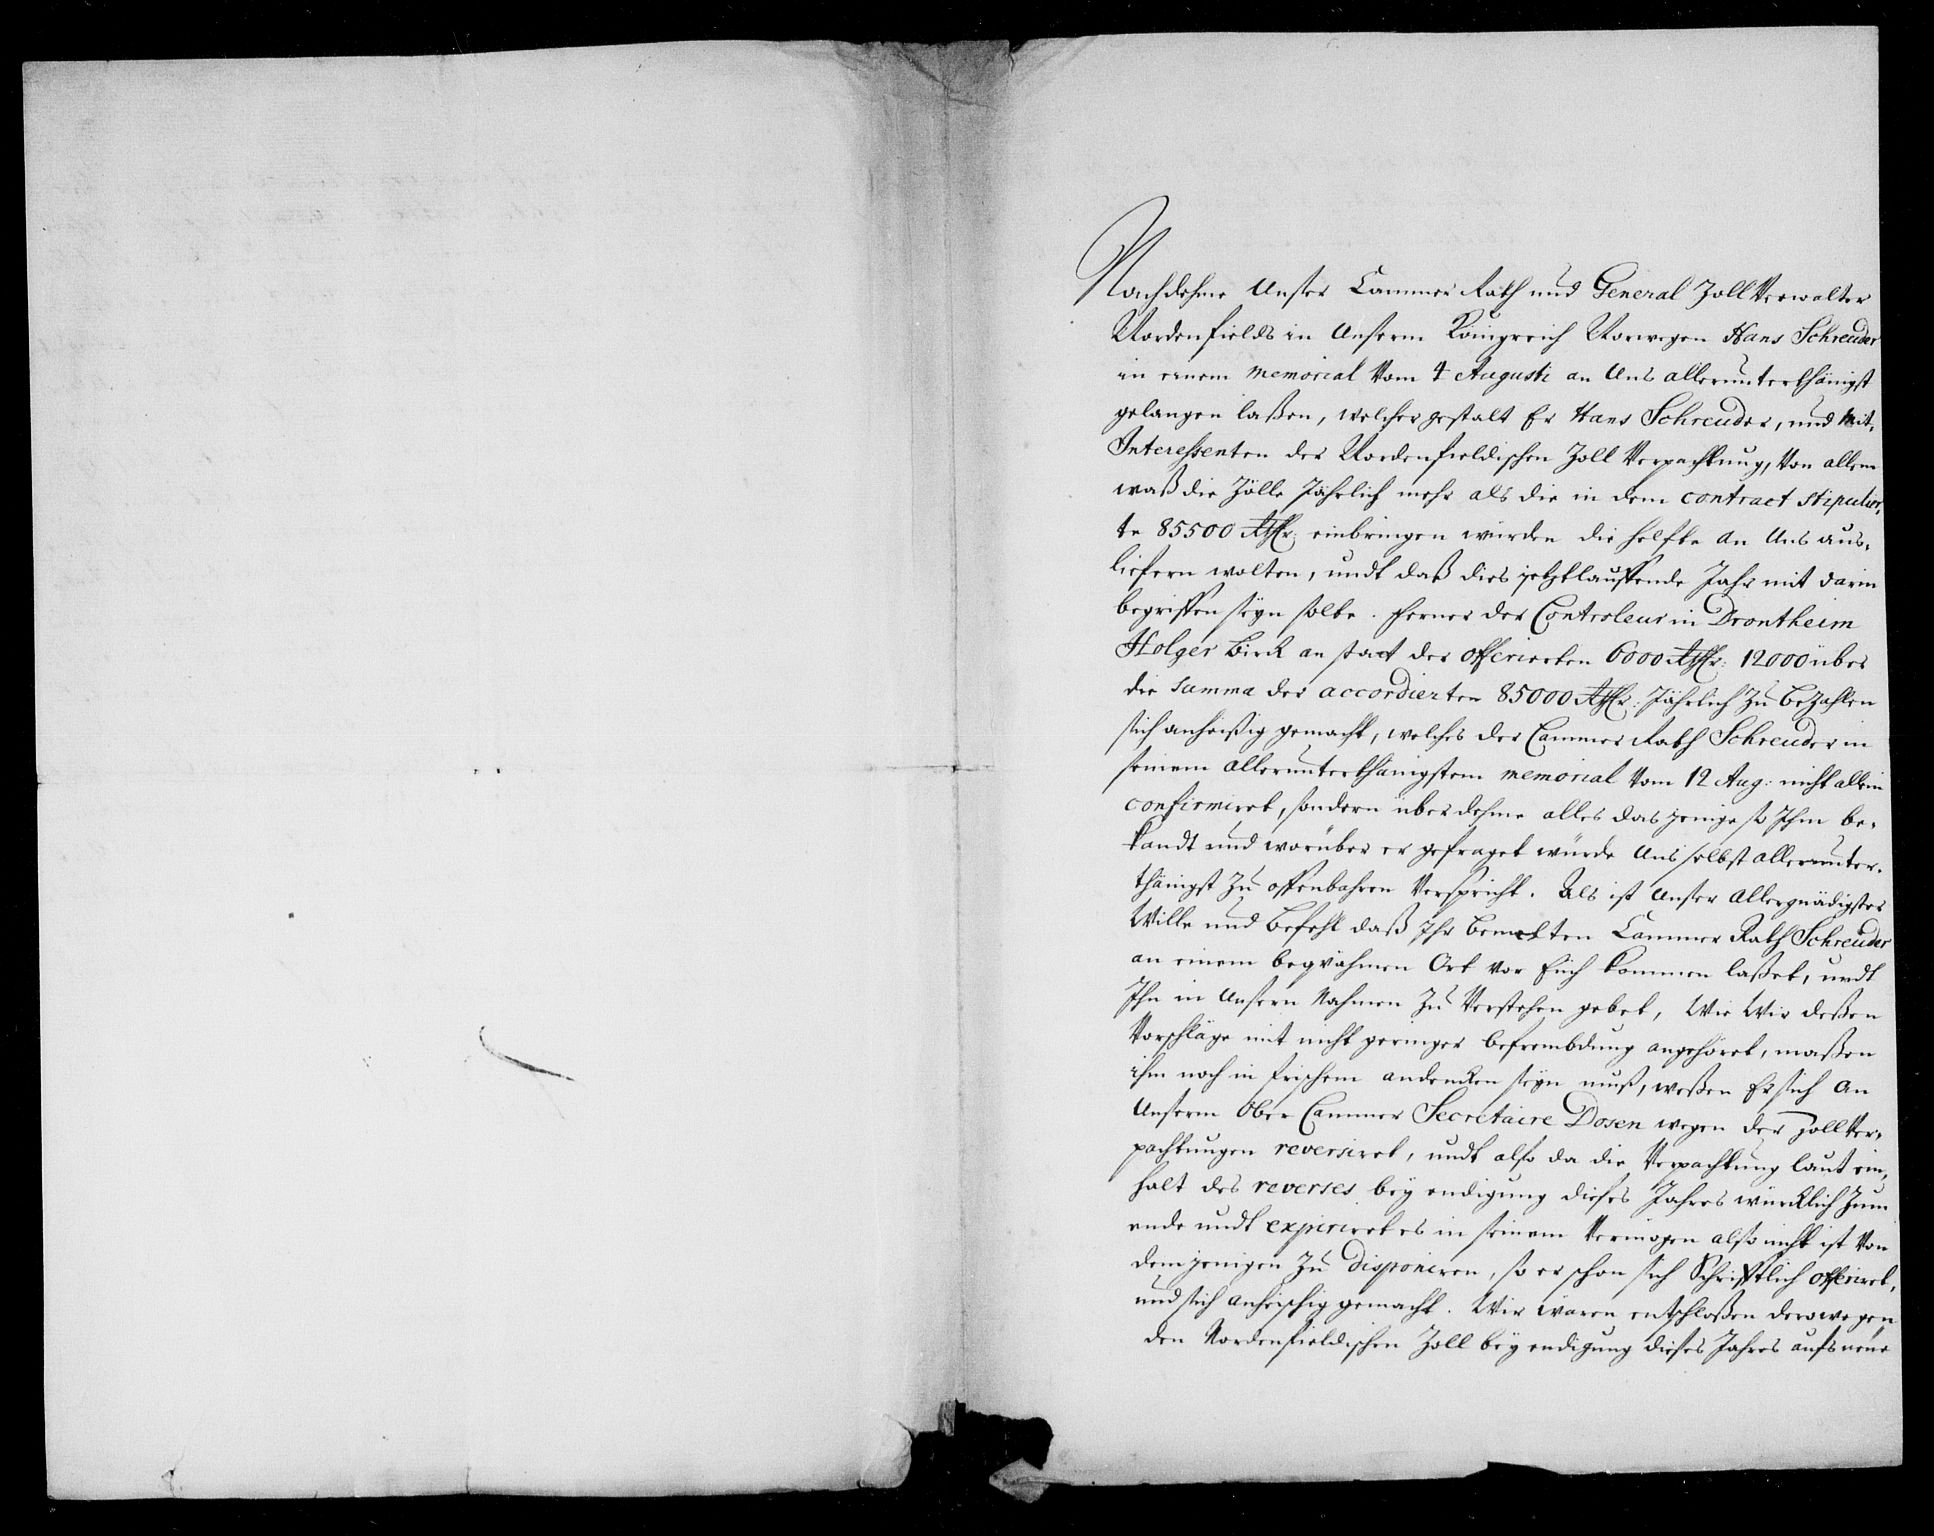 Nachdehme Unser Cammer Rath und General Zoll Verwalter
Nordenfields in Unserm Königreich Norwegen Hans Schreuder
in einem memorial vom 4 Augusti an Uns allerunterthänigst
gelangen laßen, welcher gestalt Er Hans Schreuder, und Mit,
Interessenten der Nordenfieldischen Zoll Verpachtung, von allem
waß die Zölle Jährlich mehr als die in dem contract stipulier,
te 85500 Rthlr: einbringen würden die helfte an Uns aus,
liefern wolten, undt daß dies jetztlauffende Jahr mit darin
begriffen seyn solte. Ferner der Controleur in Drontheim
Holger Birck an statt der offerierten 6000 Rthlr: 12000 über
die Summa der accordierten 85000 Rthlr: Jährlich zu bezahlen
sich anheißig gemacht, welches der Cammer Rath Schreuder in
seinem allerunterthänigstem memorial vom 12 Aug: nicht allein
confirmiret, sondern über dehme alles das jenige so Ihm be,
kandt und worüber er gefraget würde Uns selbst allerunter,
thänigst zu offenbahren verspricht. Als ist Unser allergnädigster
Wille und Befehl daß Ihr bemelten Cammer Rath Schreuder
an einem beqvähmen Ort vor Euch kommen laßet, undt
Ihn in Unsern Nahmen zu verstehen gebet, Wie Wir deßen
Vorschläge mit nicht geringer befrembdung angehöret, maßen
ihm noch in frischem andencken seyn muß, weßen Er sich an
Unserm Ober Cammer Secretaire Dosen wegen der Zoll Ver,
pachtungen reversiret, undt also da die Verpachtung laut ein,
halt des reverses bey endigung dieses Jahres würcklich zum
ende undt expiriret es in seinem Vermögen also nicht ist von
dem jenigen zu disponiren, so er schon sich Schrifftlich offeriret,
und sich anheischig gemacht. Wir wären entschloßen derowegen
den Nordenfieldischen Zoll bey endigung dieses Jahres aufs neue